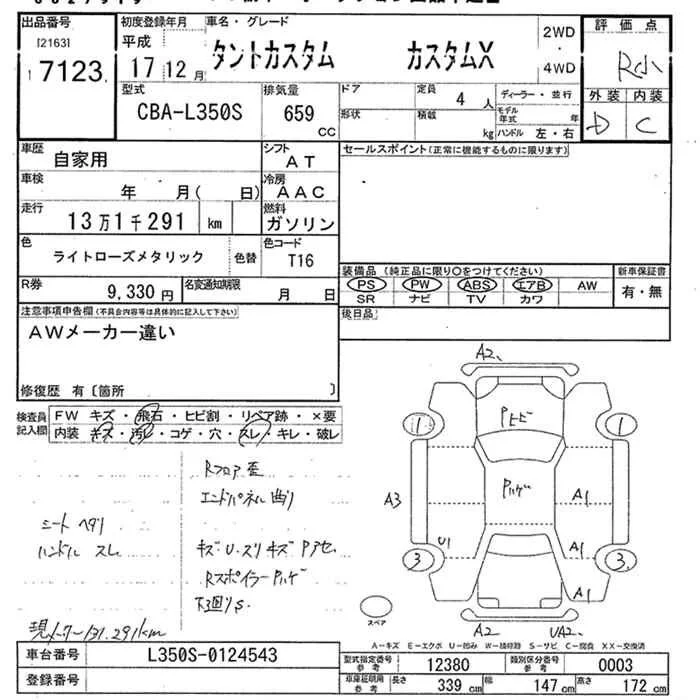 出品番号 初度登録年月 車名・グレード 2WD 評価点
[2163] 平成 ・
7123 17 12月 タントカスタム カスタムX 4WD R小
型式 排気量 ドア 定員 ディーラー・並行 外装 内装
CBA-L350S 659 CC 4人 モデル年式 年 D C
形状 積載 kg ハンドル 左・右
車歴 自家用 シフト AT セールスポイント(正常に機能するものに限ります)
車検 年 月( 日) 冷房 AAC
走行 13万1千291 km 燃料 ガソリン
色 ライトローズメタリック 色替 色コード T16
装備品(純正品に限り○をつけてください) 新車保証書
R券 9,330円 名変通知期限 月 日
PS PW ABS エアB AW 有・無
SR ナビ TV カワ
注意事項申告欄(不具合内容等は具体的に記入して下さい) 後日品
AWメーカー違い
修復歴 有〔箇所 〕
検査員記入欄 FW キズ・飛石・ヒビ割・リペア跡・×要
内装 キズ・汚レ・コゲ・穴・スレ・キレ・破レ
Rフロア歪
エンドパネル曲り
シート ヘタリ
ハンドル スレ
キズ・U・スリキズ Pアセ、
RスポイラーPハゲ
下廻りS.
現メーター131.291km
A2
Pヒビ
1 1
Pハゲ
A3 A1
U1 A1
3 3
A1
A2 UA2
スペア
A-キズ E-エクボ U-凹み W-補修跡 S-サビ C-腐食 XX-交換済
車台番号 L350S-0124543
型式指定番号 参考 12380 類別区分番号 参考 0003
登録番号
車庫証明用 参考 長さ 339cm 幅 147cm 高さ 172cm